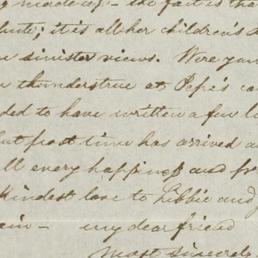 made up - the fact is tha
it is all her children's
sinister views. Were you
thunderstruck at Pope's
ded to have written a few l
but post time has arrived a
ll every happiness and
Kindest love to Libbie and
ain - my dear friend
Most sincerely